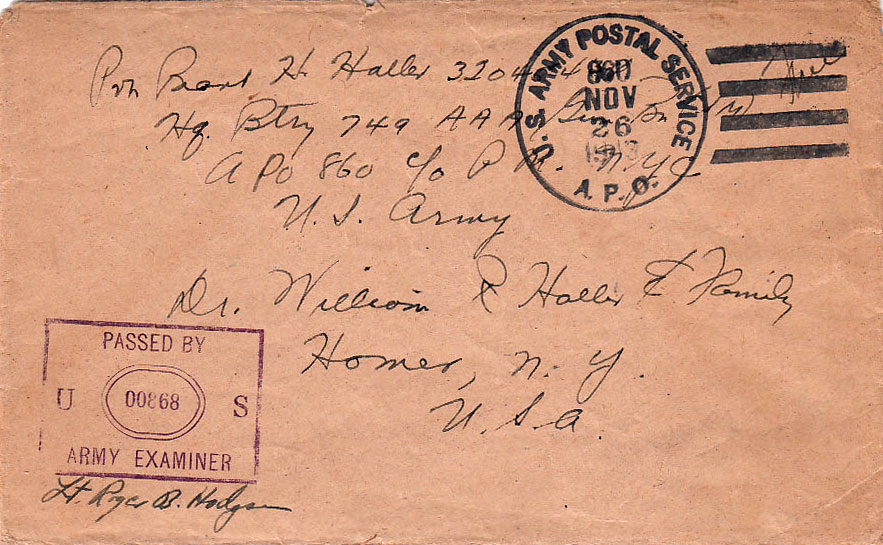 Pvt H. Haller
Free
Hq. Btry 749 AAA Gun Bn
APO 860 c/o P.M. N.Y.C
U.S. Army
U.S. ARMY POSTAL SERVICE
NOV
26
A. P. O.
Dr. William R Haller & Family
Homer, N.Y.
U.S.A.
PASSED BY
U 00868 S
ARMY EXAMINER
Lt. Roger B. Hodgson